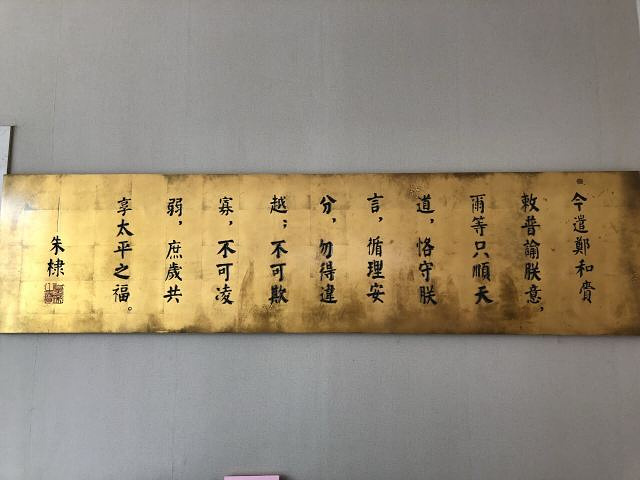 今遣鄭和賫
敕普諭朕意，
爾等只順天
道，恪守朕
言，循理安
分，勿得違
越；不可欺
寡，不可凌
弱，庶歲共
享太平之福。
朱棣